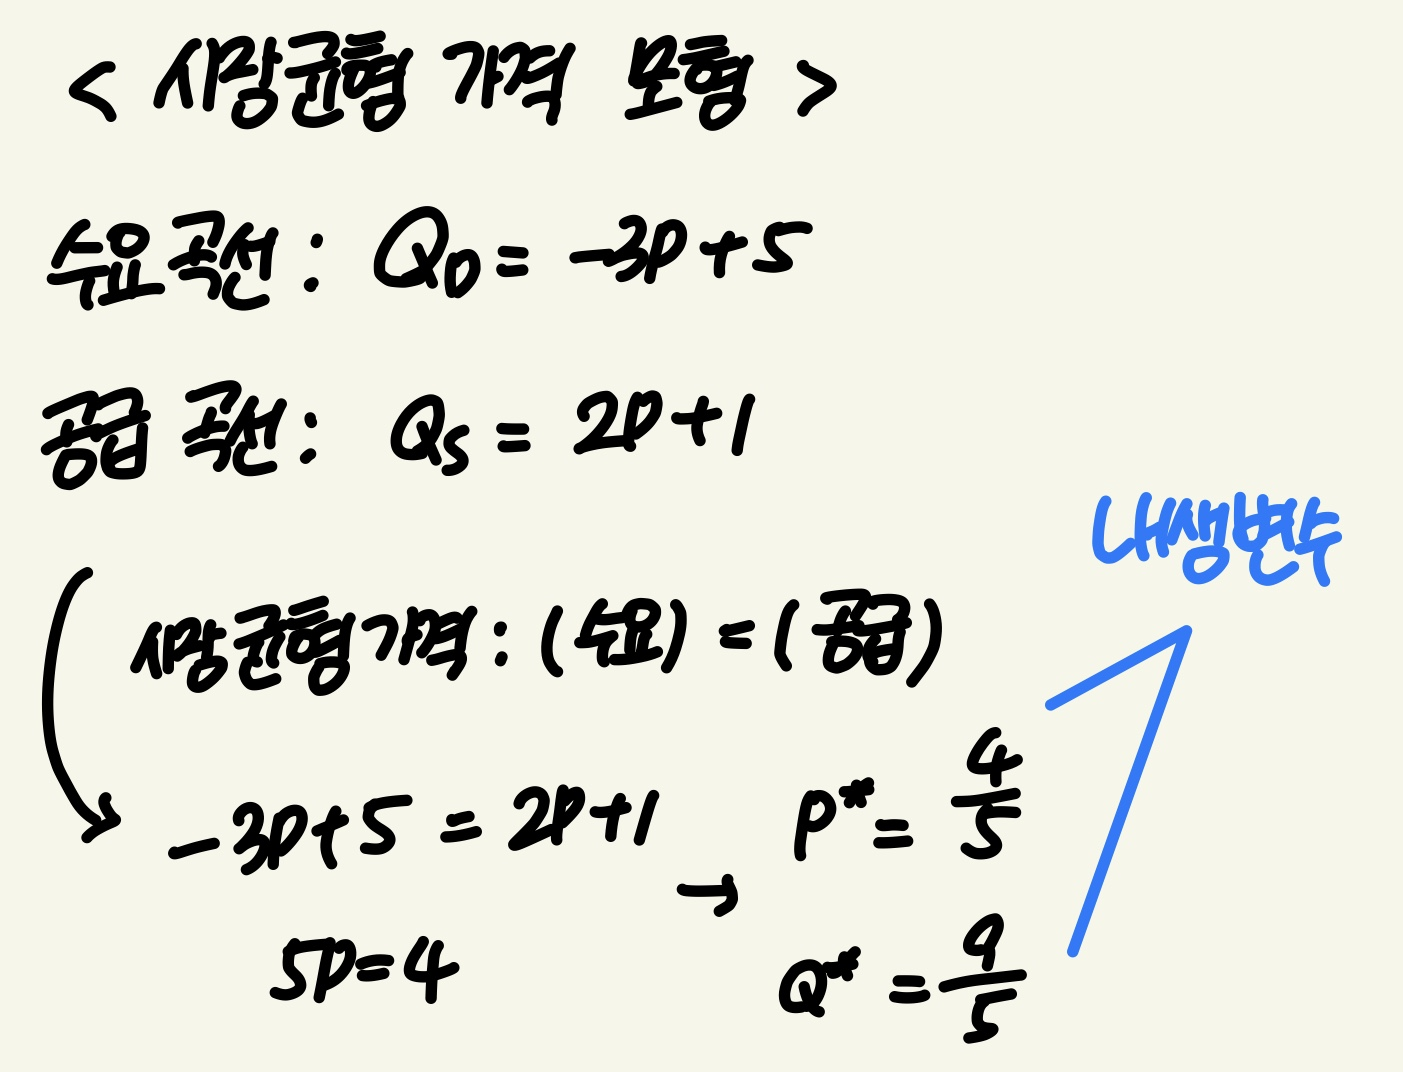 < 시장균형 가격 모형 >
수요곡선 : Q_D = -3P + 5
공급 곡선 : Q_S = 2P + 1
내생변수
시장균형가격 : (수요) = (공급)
-3P + 5 = 2P + 1 → P* = 4/5
5P = 4
Q* = 9/5